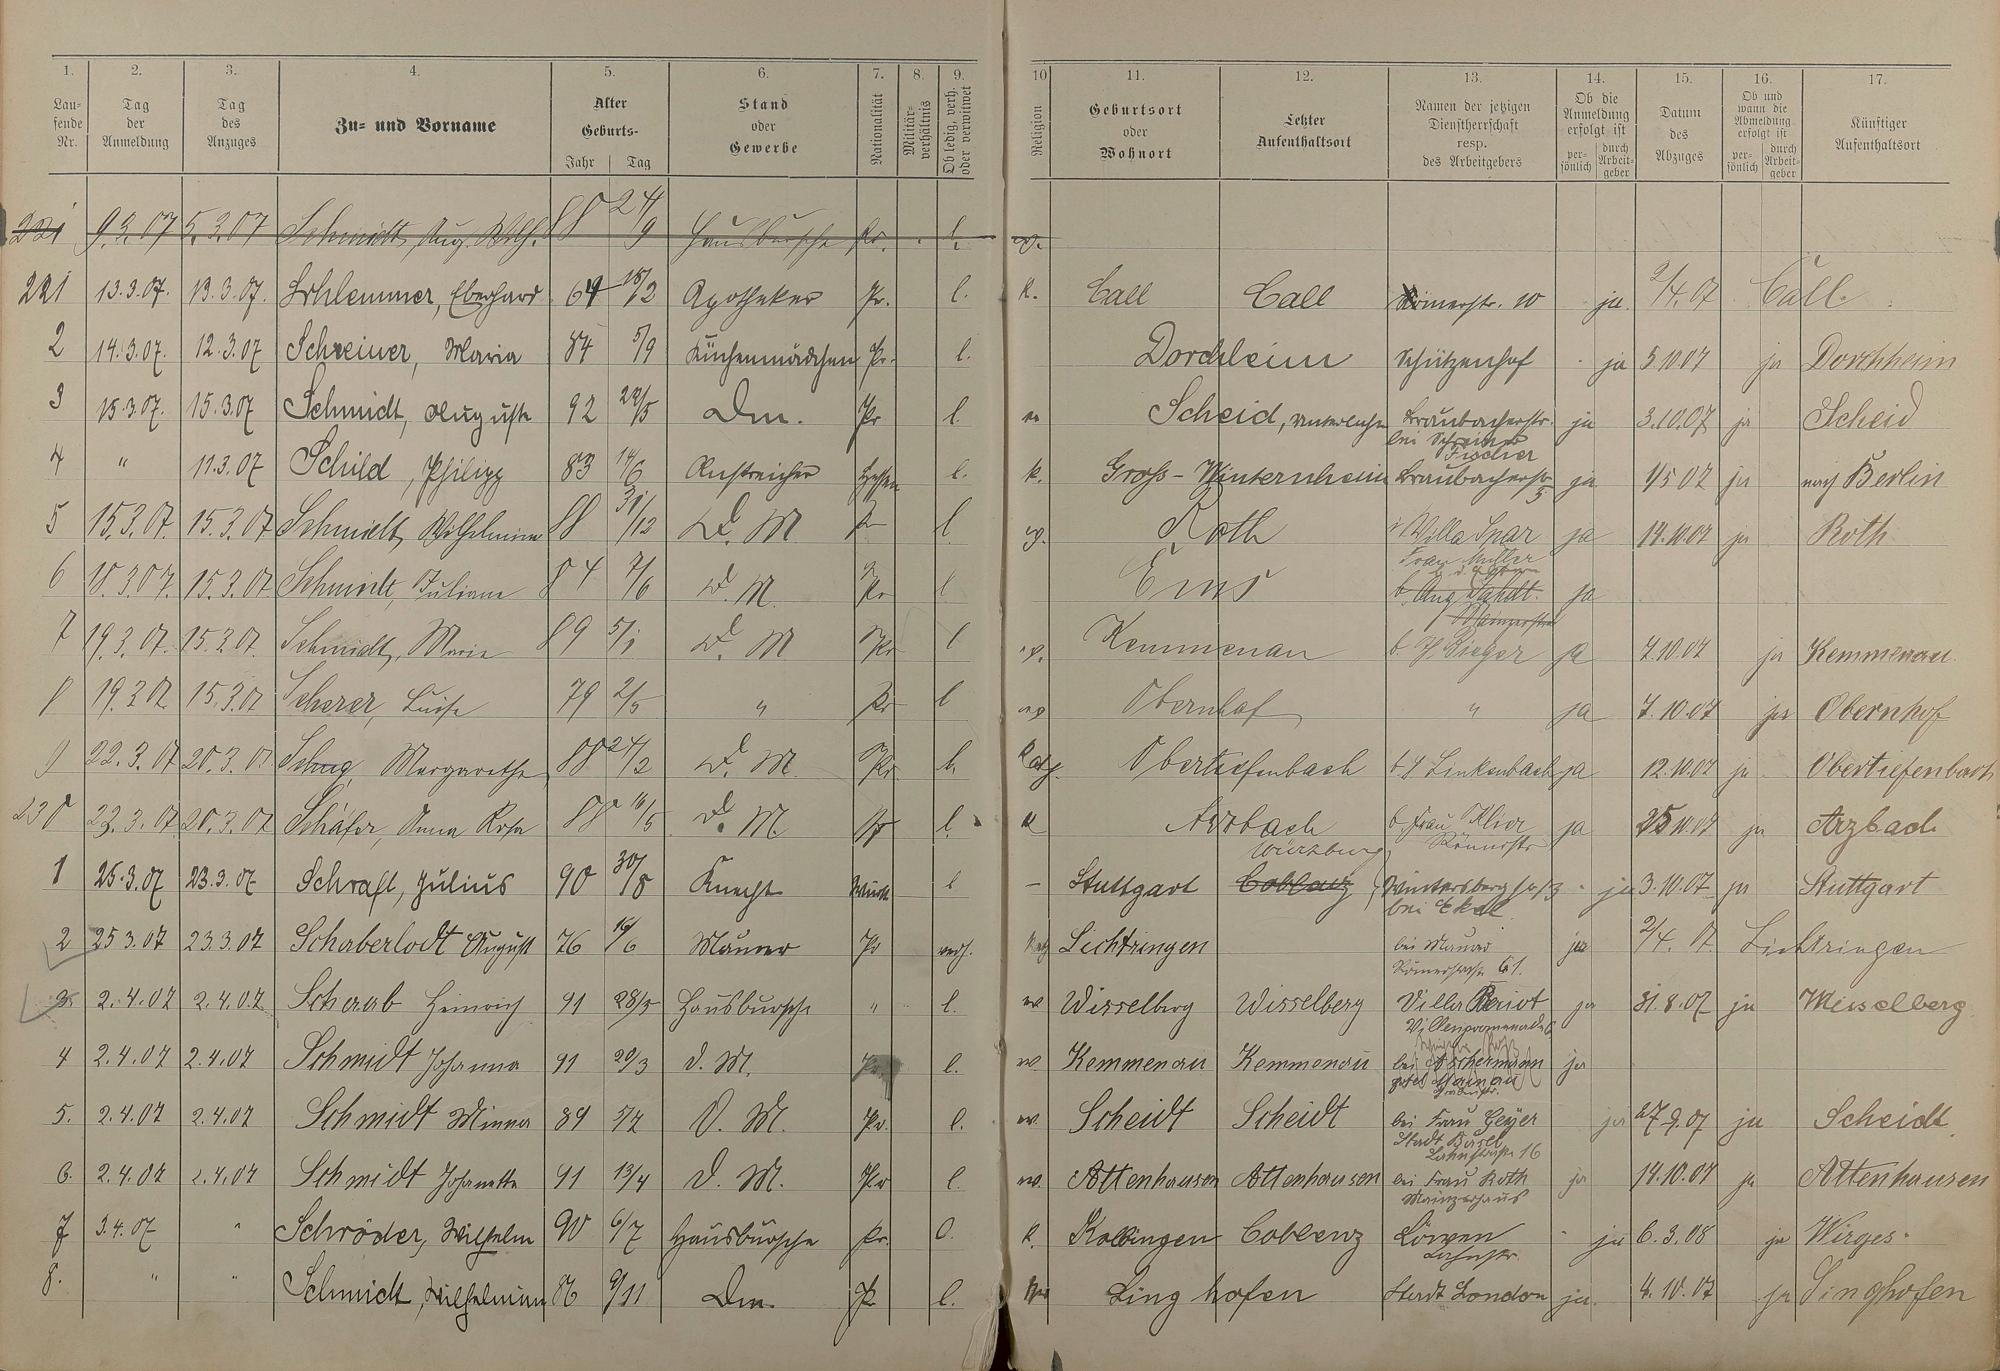 1. 2. 3. 4. 5. 6. 7. 8. 9. 10 11. 12. 13. 14. 15. 16. 17.
Lau-
fende
Nr.
Tag
der
Anmeldung
Tag
des
Anzuges
Zu- und Vorname
Alter
Geburts-
Jahr Tag
Stand
oder
Gewerbe
Nationalität
Militär-
verhältnis
Ob ledig, verh.
oder verwitwet
Religion
Geburtsort
oder
Wohnort
Letzter
Aufenthaltsort
Namen der jetzigen
Dienstherrschaft
resp.
des Arbeitgebers
Ob die
Anmeldung
erfolgt ist
per-
sönlich
durch
Arbeit-
geber
Datum
des
Abzuges
Ob und
wann die
Abmeldung
erfolgt ist
per-
sönlich
durch
Arbeit-
geber
Künftiger
Aufenthaltsort
221 9.3.07 5.3.07 Schmidt, Aug. Wilh. 88 24/9 Hausbursche Pr. l.
221 13.3.07. 13.3.07. Schlemmer, Eberhard 64 18/2 Apotheker Pr. l. k. Call Call Römerstr. 10 ja. 2/4.07 Call.
2 14.3.07. 12.3.07 Schreiner, Maria 84 5/9 Küchenmädchen Pr. l. Dorchheim Schützenhof ja 5.10.07 ja Dorchheim
3 15.3.07. 15.3.07 Schmidt, Auguste 92 22/5 Dm. Pr l. Scheid, Braubacherstr. ja 3.10.07 ja Scheid
bei Schreiner
Fischer
4 " 11.3.07 Schild, Philipp 83 14/6 Anstreicher Hessen l. k. Gross-Winternheim Braubacherstr ja 1/5 07 ja nach Berlin
5
5 15.3.07. 15.3.07 Schmidt, Wilhelmine 88 31/12 D. M Pr l. ev. Roth Villa Spar ja 14.10.07 ja Roth
Frau Müller
6 18.3.07. 15.3.07 Schmidt, Juliane 84 7/6 D. M. Pr l Ems b. Aug ja
7 19.3.07. 15.3.07. Schmidt, Marie 89 5/1 D. M Pr l ev. Kemmenau b. Rieger ja 7.10.07 ja Kemmenau.
8 19.3.07 15.3.07 Scherer, Luise 79 2/5 " Pr l ev Obernhof " ja 7.10.07 ja Obernhof
9 22.3.07 20.3.07 Schug, Margarethe 88 24/2 D. M. Pr. l. Kath. Obertiefenbach b. Linkenbach ja 12.10.07 ja Obertiefenbach
230 23.3.07 20.3.07 Schäfer, Anna Rosa 88 16/5 D. M. Pr l. k Arzbach b. Frau Klier ja 25 10.07 ja Arzbach
Würzburg Römerstr
1 25.3.07 23.3.07 Schrafl, Julius 90 30/8 Knecht Württ l – Stuttgart Coblenz Wintersberg ja 3.10.07 ja Stuttgart
bei Ekel
2 25 3.07 23.3.07 Schaberlodt August 76 16/6 Maurer Pr verh. Kath Lichtringen bei Maurer ja 2/4. 07. Lichtringen
Römerstrasse 61.
3. 2.4.07 2.4.07 Schaab Heinrich 91 28/3 Hausbursche " l. ev Wisselberg Wisselberg Villa Beriot ja 31.8.07 ja Misselberg
Villenpromenade 6
4 2.4.07 2.4.07 Schmidt Johanna 91 20/3 D. M. l. ev Kemmenau Kemmenau bei Ackermann ja
5. 2.4.07 2.4.07 Schmidt Minna 89 5/7 D. M. Pr. l. ev. Scheidt Scheidt bei Frau Geyer ja 27.9.07 ja Scheidt
Stadt Basel
Lahnstraße 16
6. 2.4.07 2.4.07 Schmidt Johanette 91 13/4 D. M. Pr l. ev. Attenhausen Attenhausen bei Frau Roth ja 14.10.07 ja Attenhausen
Mainzerhaus
7 3.4.07 " Schröder, Wilhelm 90 6/7 Hausbursche Pr. k. Coblenz Löwen ja 6.3.08 ja Wirges.
Lahnstr.
8. " " Schmidt, Wilhelmine 86 9/11 Dm. Pr l. Singhofen Stadt London ja. 4.10.07 ja Singhofen